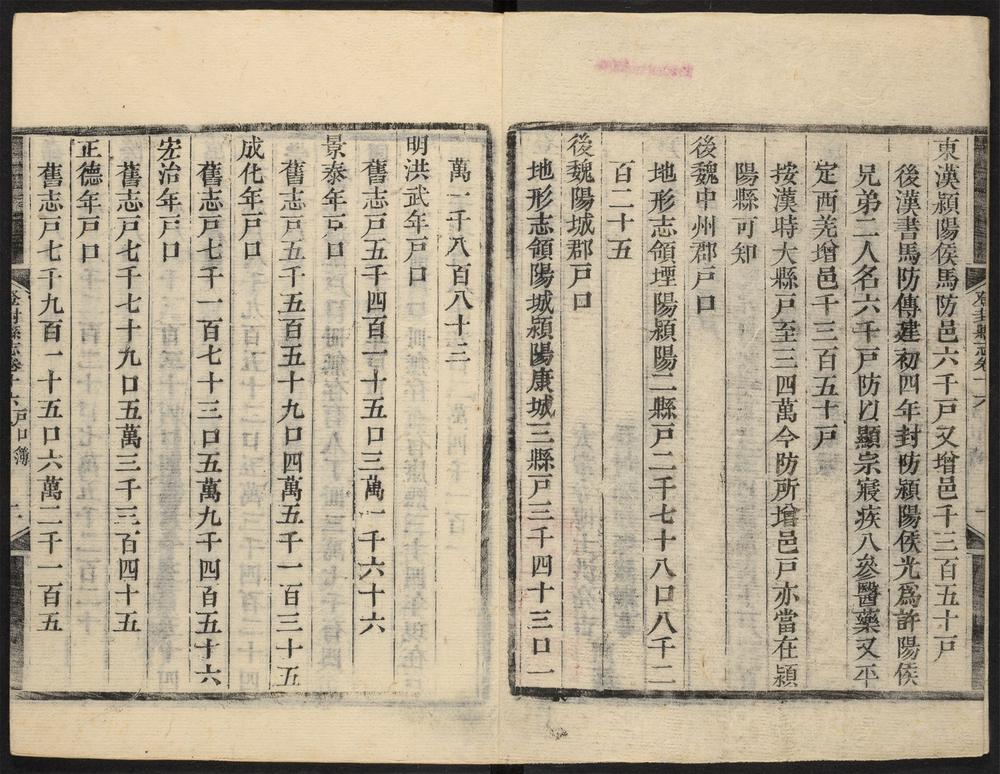 東漢潁陽侯馬防邑六千戸又增邑千三百五十戸
後漢書馬防傳建初四年封防潁陽侯光爲許陽侯
兄弟二人名六千戸防以顯宗寢疾入參醫藥又平
定西羌增邑千三百五十戸
按漢時大縣戸至三四萬今防所增邑戸亦當在潁
陽縣可知
後魏中州郡戸口
地形志領堙陽潁陽二縣戸二千七十八口八千二
百二十五
後魏陽城郡戸口
地形志領陽城潁陽康城三縣戸三千四十三口一
登封縣志卷十六 戸口簿
萬一千八百八十二
明洪武年戸口
舊志戸五千四百一十五口三萬一千六十六
景泰年戸口
舊志戸五千五百五十九口四萬五千一百三十五
成化年戸口
舊志戸七千一百七十三口五萬九千四百五十六
宏治年戸口
舊志戸七千七十九口五萬三千三百四十五
正德年戸口
舊志戸七千九百一十五口六萬二千一百五